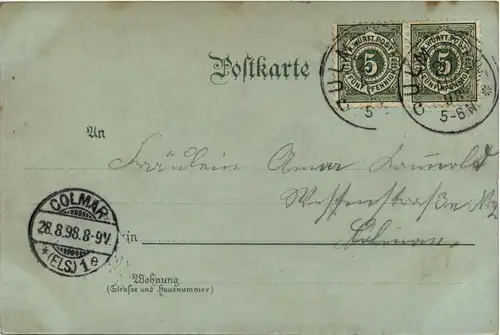 K. WÜRTT. POST
5
FÜNF PFENNIG
K. WÜRTT. POST
5
FÜNF PFENNIG
ULM
5
ULM
5-6 N
Postkarte
An
Fräulein Anna
Colmar.
in
COLMAR
28.8.98. 8-9V.
* (ELS) 1 e
Wohnung
(Strasse und Hausnummer)